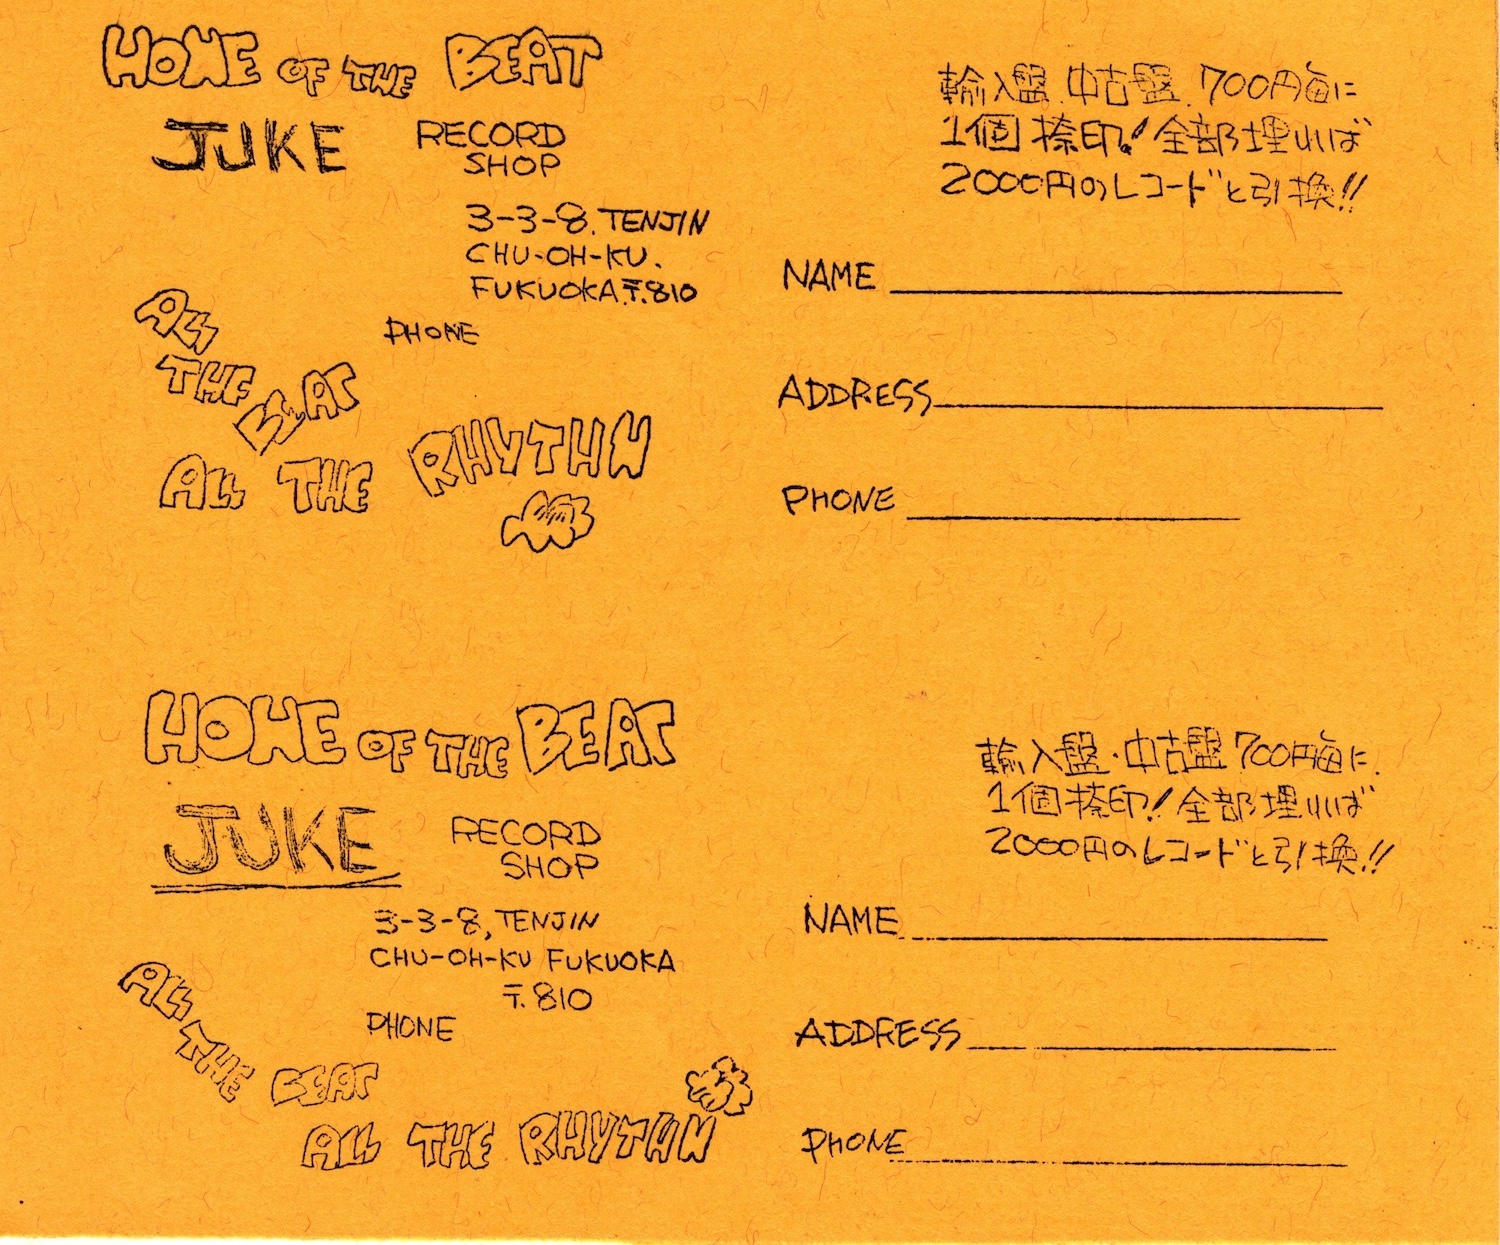 HOME OF THE BEAT
JUKE RECORD
SHOP
3-3-8. TENJIN
CHU-OH-KU.
FUKUOKA.〒.810
PHONE
ALL
THE
BEAT
ALL THE RHYTHM
輸入盤.中古盤.700円毎に
1個捺印!全部埋れば
2000円のレコードと引換!!
NAME
ADDRESS
PHONE
HOME OF THE BEAT
JUKE RECORD
SHOP
3-3-8, TENJIN
CHU-OH-KU FUKUOKA
〒.810
PHONE
ALL
THE BEAT
ALL THE RHYTHM
輸入盤・中古盤700円毎に.
1個捺印!全部埋れば
2000円のレコードと引換!!
NAME
ADDRESS
PHONE